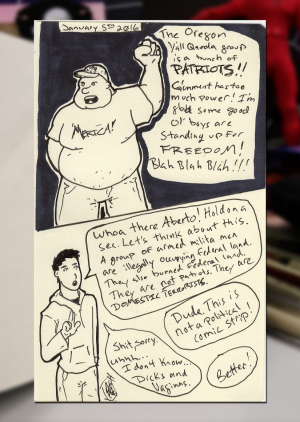 January 5th 2016
The Oregon
Y'all Qaeda group
is a bunch of
PATRIOTS!!
Gubment has too
much power! I'm
glad some good
Ol' boys are
Standing up for
FREEDOM!
Blah Blah Blah!!!
'MERICA!
Whoa there Aberto! Hold on a
sec. Let's think about this.
A group of armed milita men
are illegally occupying federal land.
They also burned federal land.
They are not patriots. They are
DOMESTIC TERRORISTS.
Dude. This is
not a political
comic strip!
Shit, sorry.
uhhh...
I don't know...
Dicks and
Vaginas.
Better!